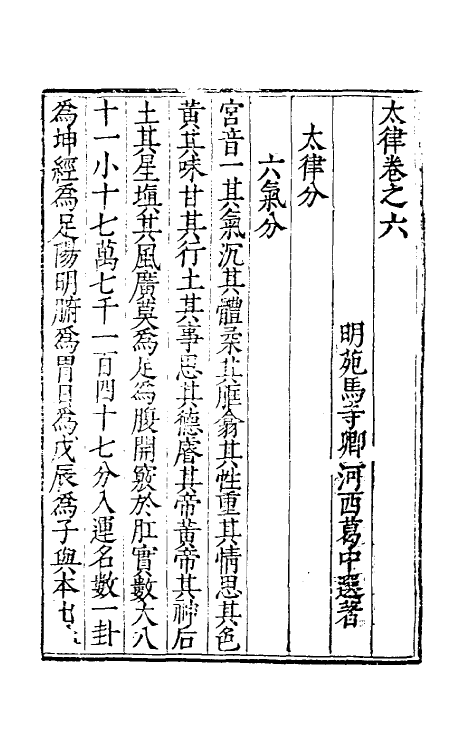 太律卷之六
明苑馬寺卿河西葛中選著
太律分
六氣分
宮音一其氣沉其體柔其脽翕其性重其情思其色
黃其味甘其行土其事思其德睿其帝黃帝其神后
土其星塡其風廣莫爲足爲腹開竅於肛實數大八
十一小十七萬七千一百四十七分入運名數一卦
爲坤經爲足陽明腑爲胃日爲戊辰爲子與本七